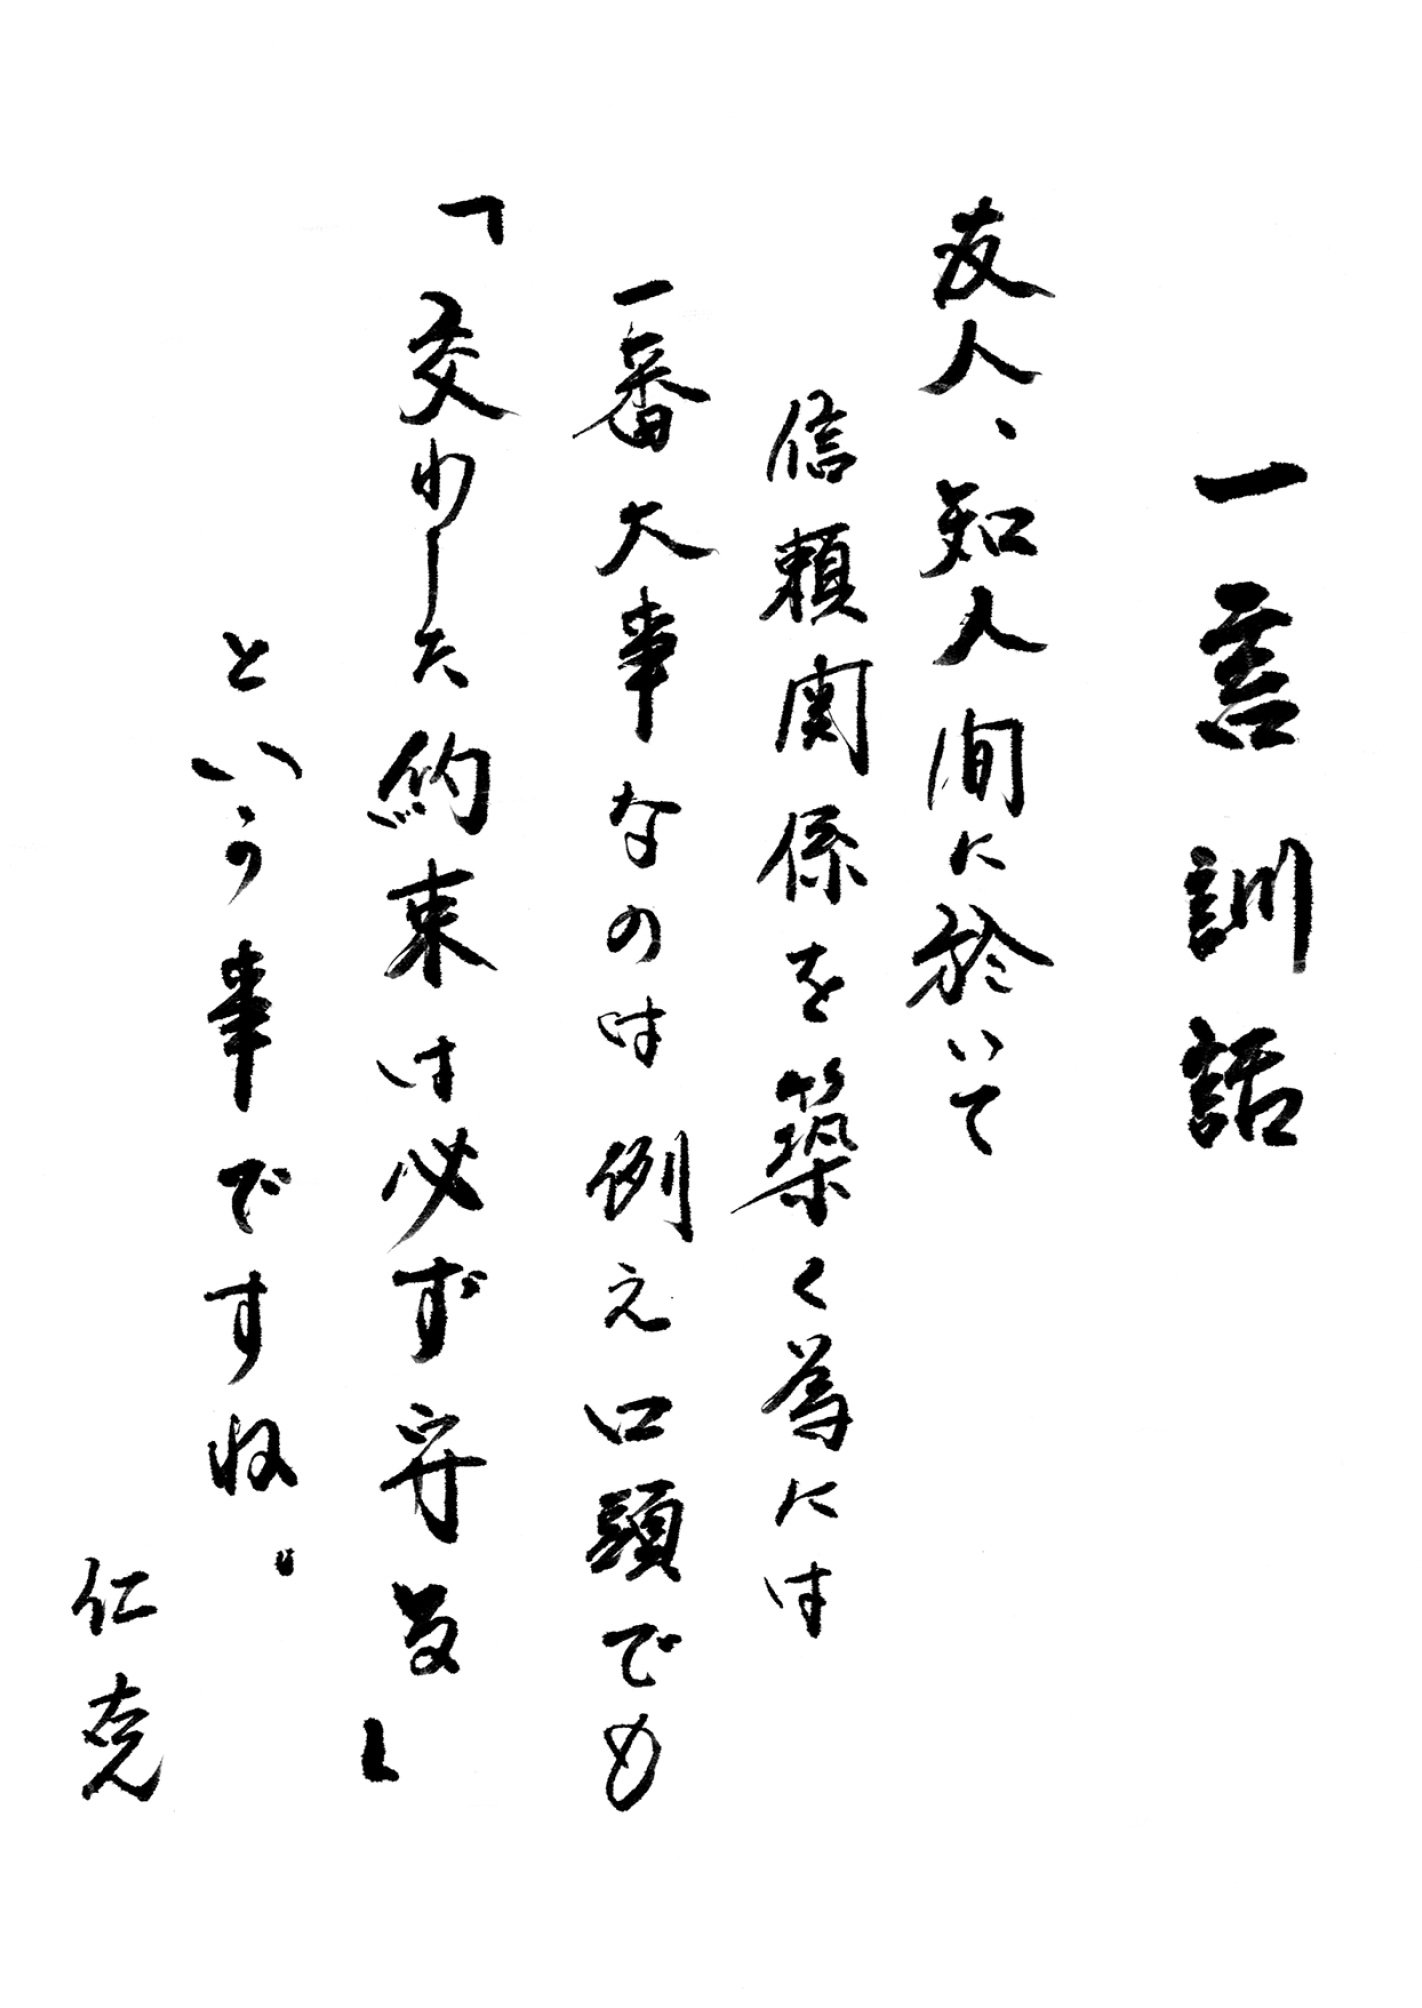 一言訓話
友人、知人間に於いて
信頼関係を築く為には
一番大事なのは例え口頭でも
「交わした約束は必ず守る」
という事ですね。
仁尭